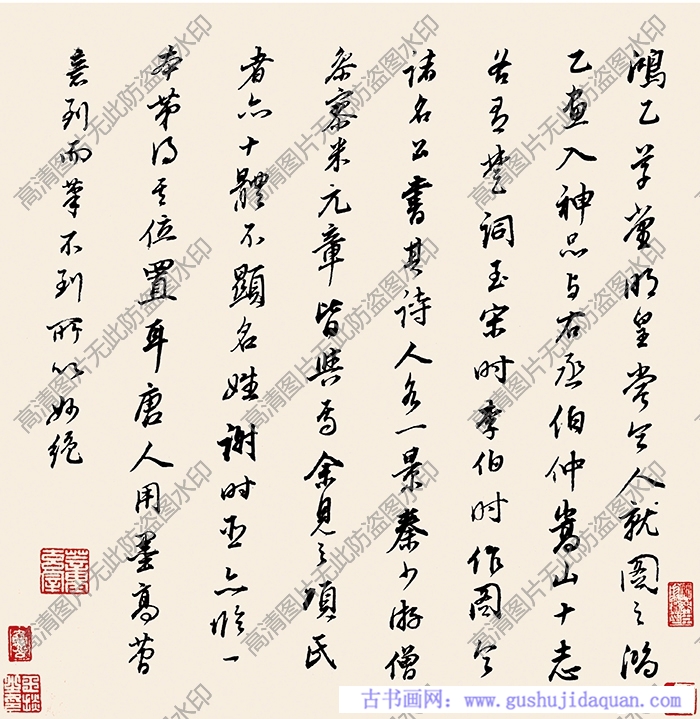 鴻乙草堂明皇嘗令人就圖之鴻
乙畫入神品与右丞伯仲嵩山十志
若有楚詞至宋时李伯时作图令
诸名公書其诗人各一景秦少游僧
参寥米元章皆與焉余見之項氏
者亦十體不顯名姓谢时臣亦临一
本第得其位置耳唐人用墨高簡
意到而筆不到所以妙絕
古书画网：www.gushujidaquan.com
高清图片无此防盗图水印